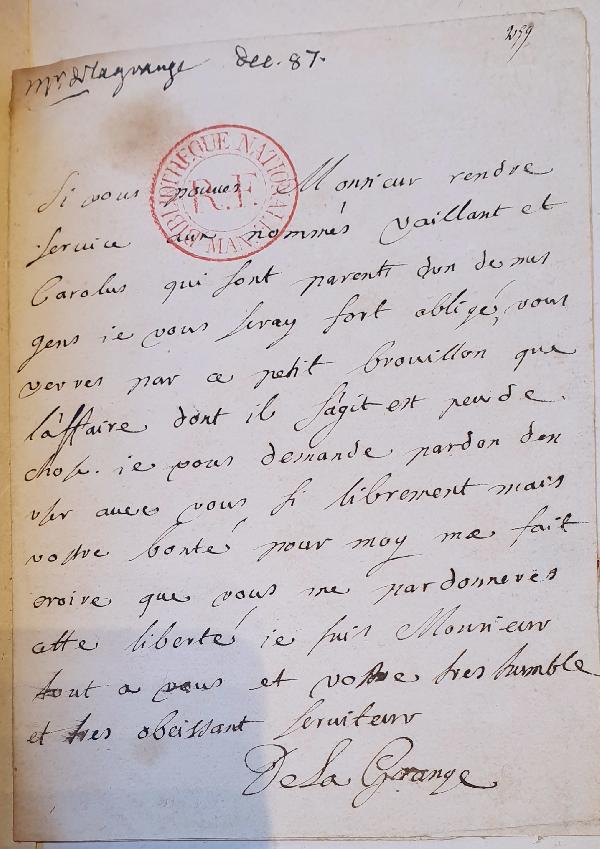 259
Mr de Lagrange dec. 87.
BIBLIOTHEQUE NATIONALE MAN.
R.F.
Si vous pouves Monsieur rendre
service aux nommés Vaillant et
Carolus qui sont parents d'un de mes
gens ie vous seray fort obligé, vous
verres par ce petit brouillon que
l'affaire dont il s'agit est peu de
chose. ie vous demande pardon d'en
vser auec vous si librement mais
vostre bonté pour moy me fait
croire que vous me pardonneres
cette liberté ie suis Monsieur
tout a vous et vostre tres humble
et tres obeissant seruiteur
De La Grange